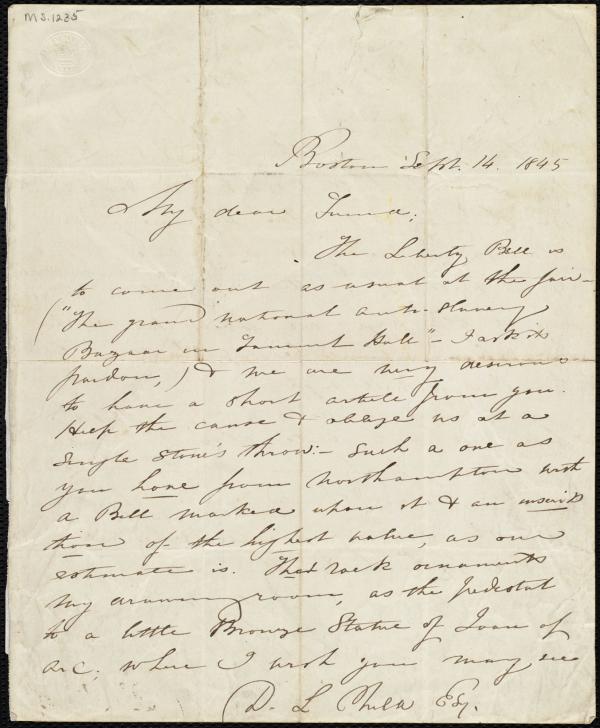 MS.1235
Boston Sept. 14. 1845
My dear Friend,
The Liberty Bell is
to come out as usual at the fair—
("The grand national Anti-Slavery
Bazaar in Faneuil Hall" — I ask
pardon,) & we are very desirous
to have a short article from you.
Help the cause & oblige us at a
single stone's throw:— Such a one as
you hove from Northampton with
a Bell marked upon it & an inscrip
tion of the highest value, as our
estimate is. That rock ornaments
my drawing room, as the pedestal
to a little Bronze Statue of Joan of
Arc; where I wish you may see
D. L. Child Esq.